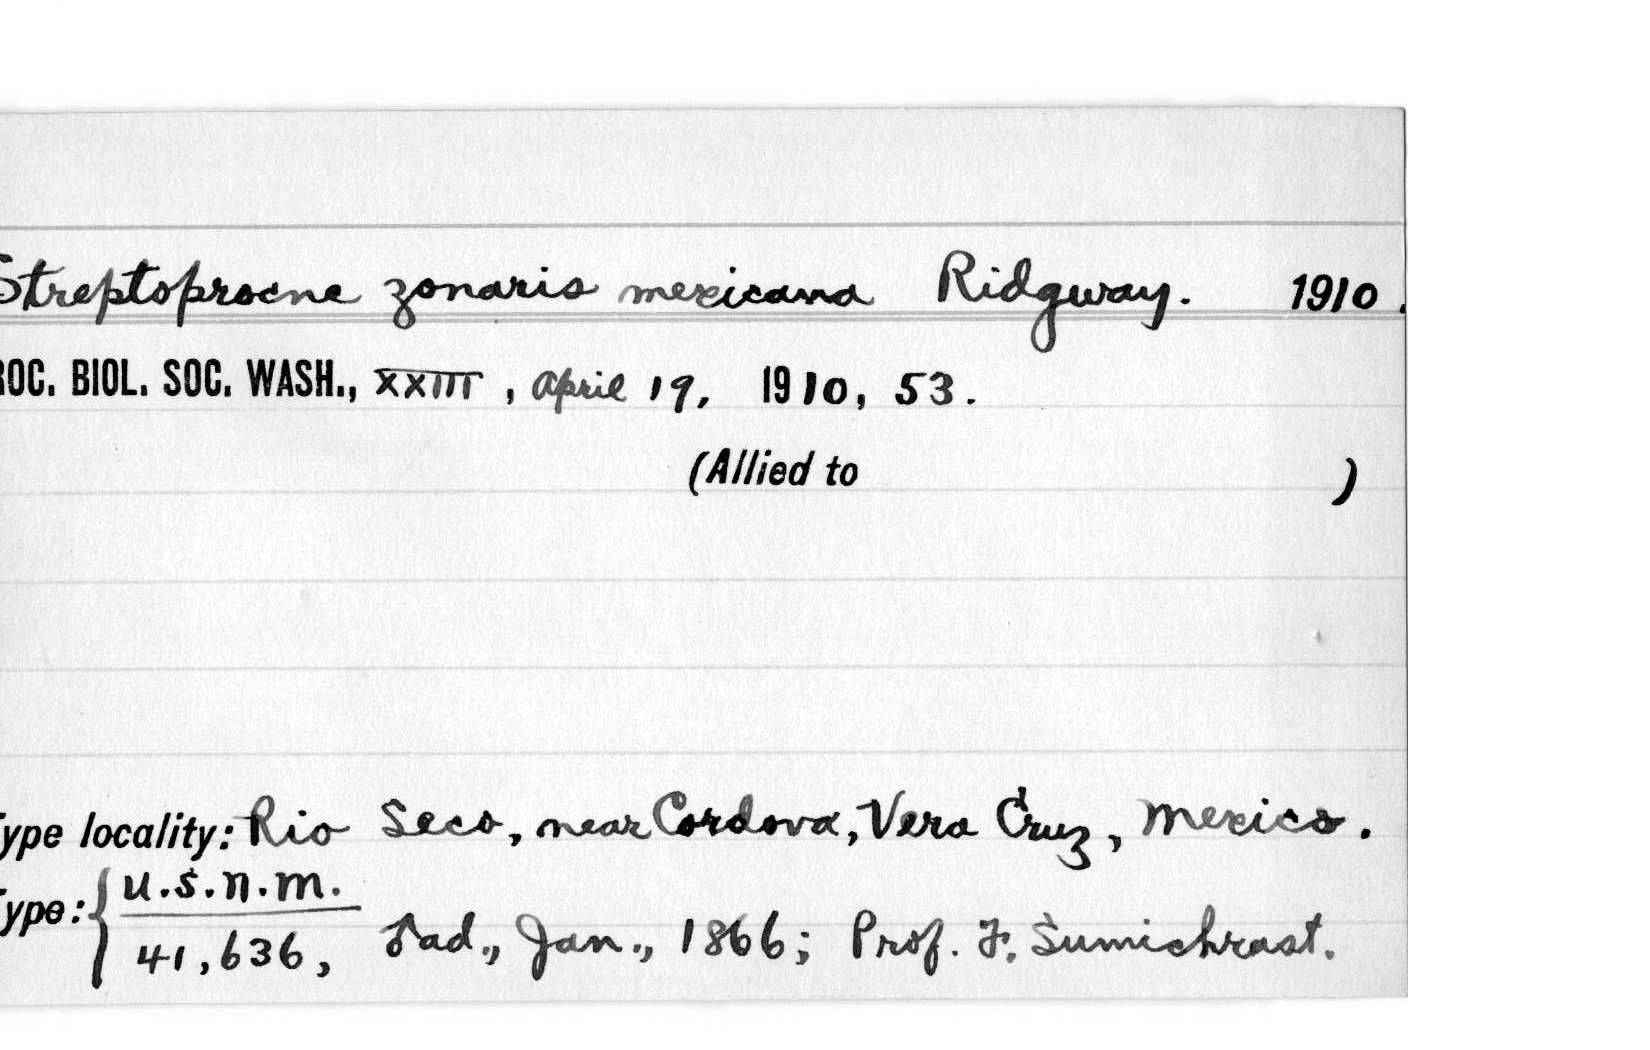 Streptoprocne zonaris mexicana Ridgway. 1910.
ROC. BIOL. SOC. WASH., XXIII, April 19, 1910, 53.
(Allied to )
Type locality: Rio Seco, near Cordova, Vera Cruz, Mexico.
Type: { U.S.N.M.
41,636, ad., Jan., 1866; Prof. F. Sumichrast.